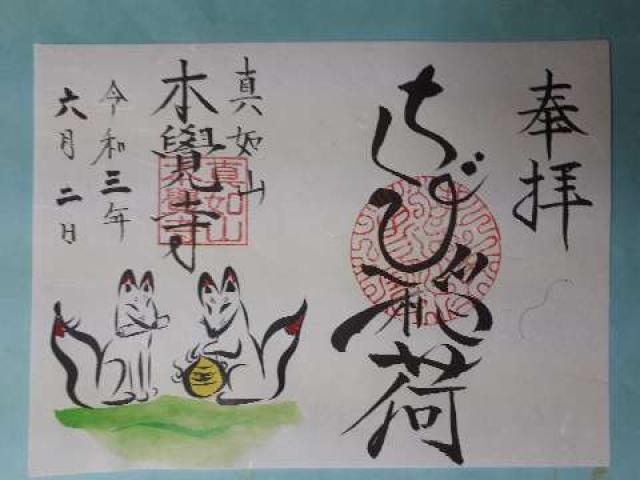 奉拝
ちび稲荷
真如山
本覺寺
真如山
本覺寺
令和三年
六月二日